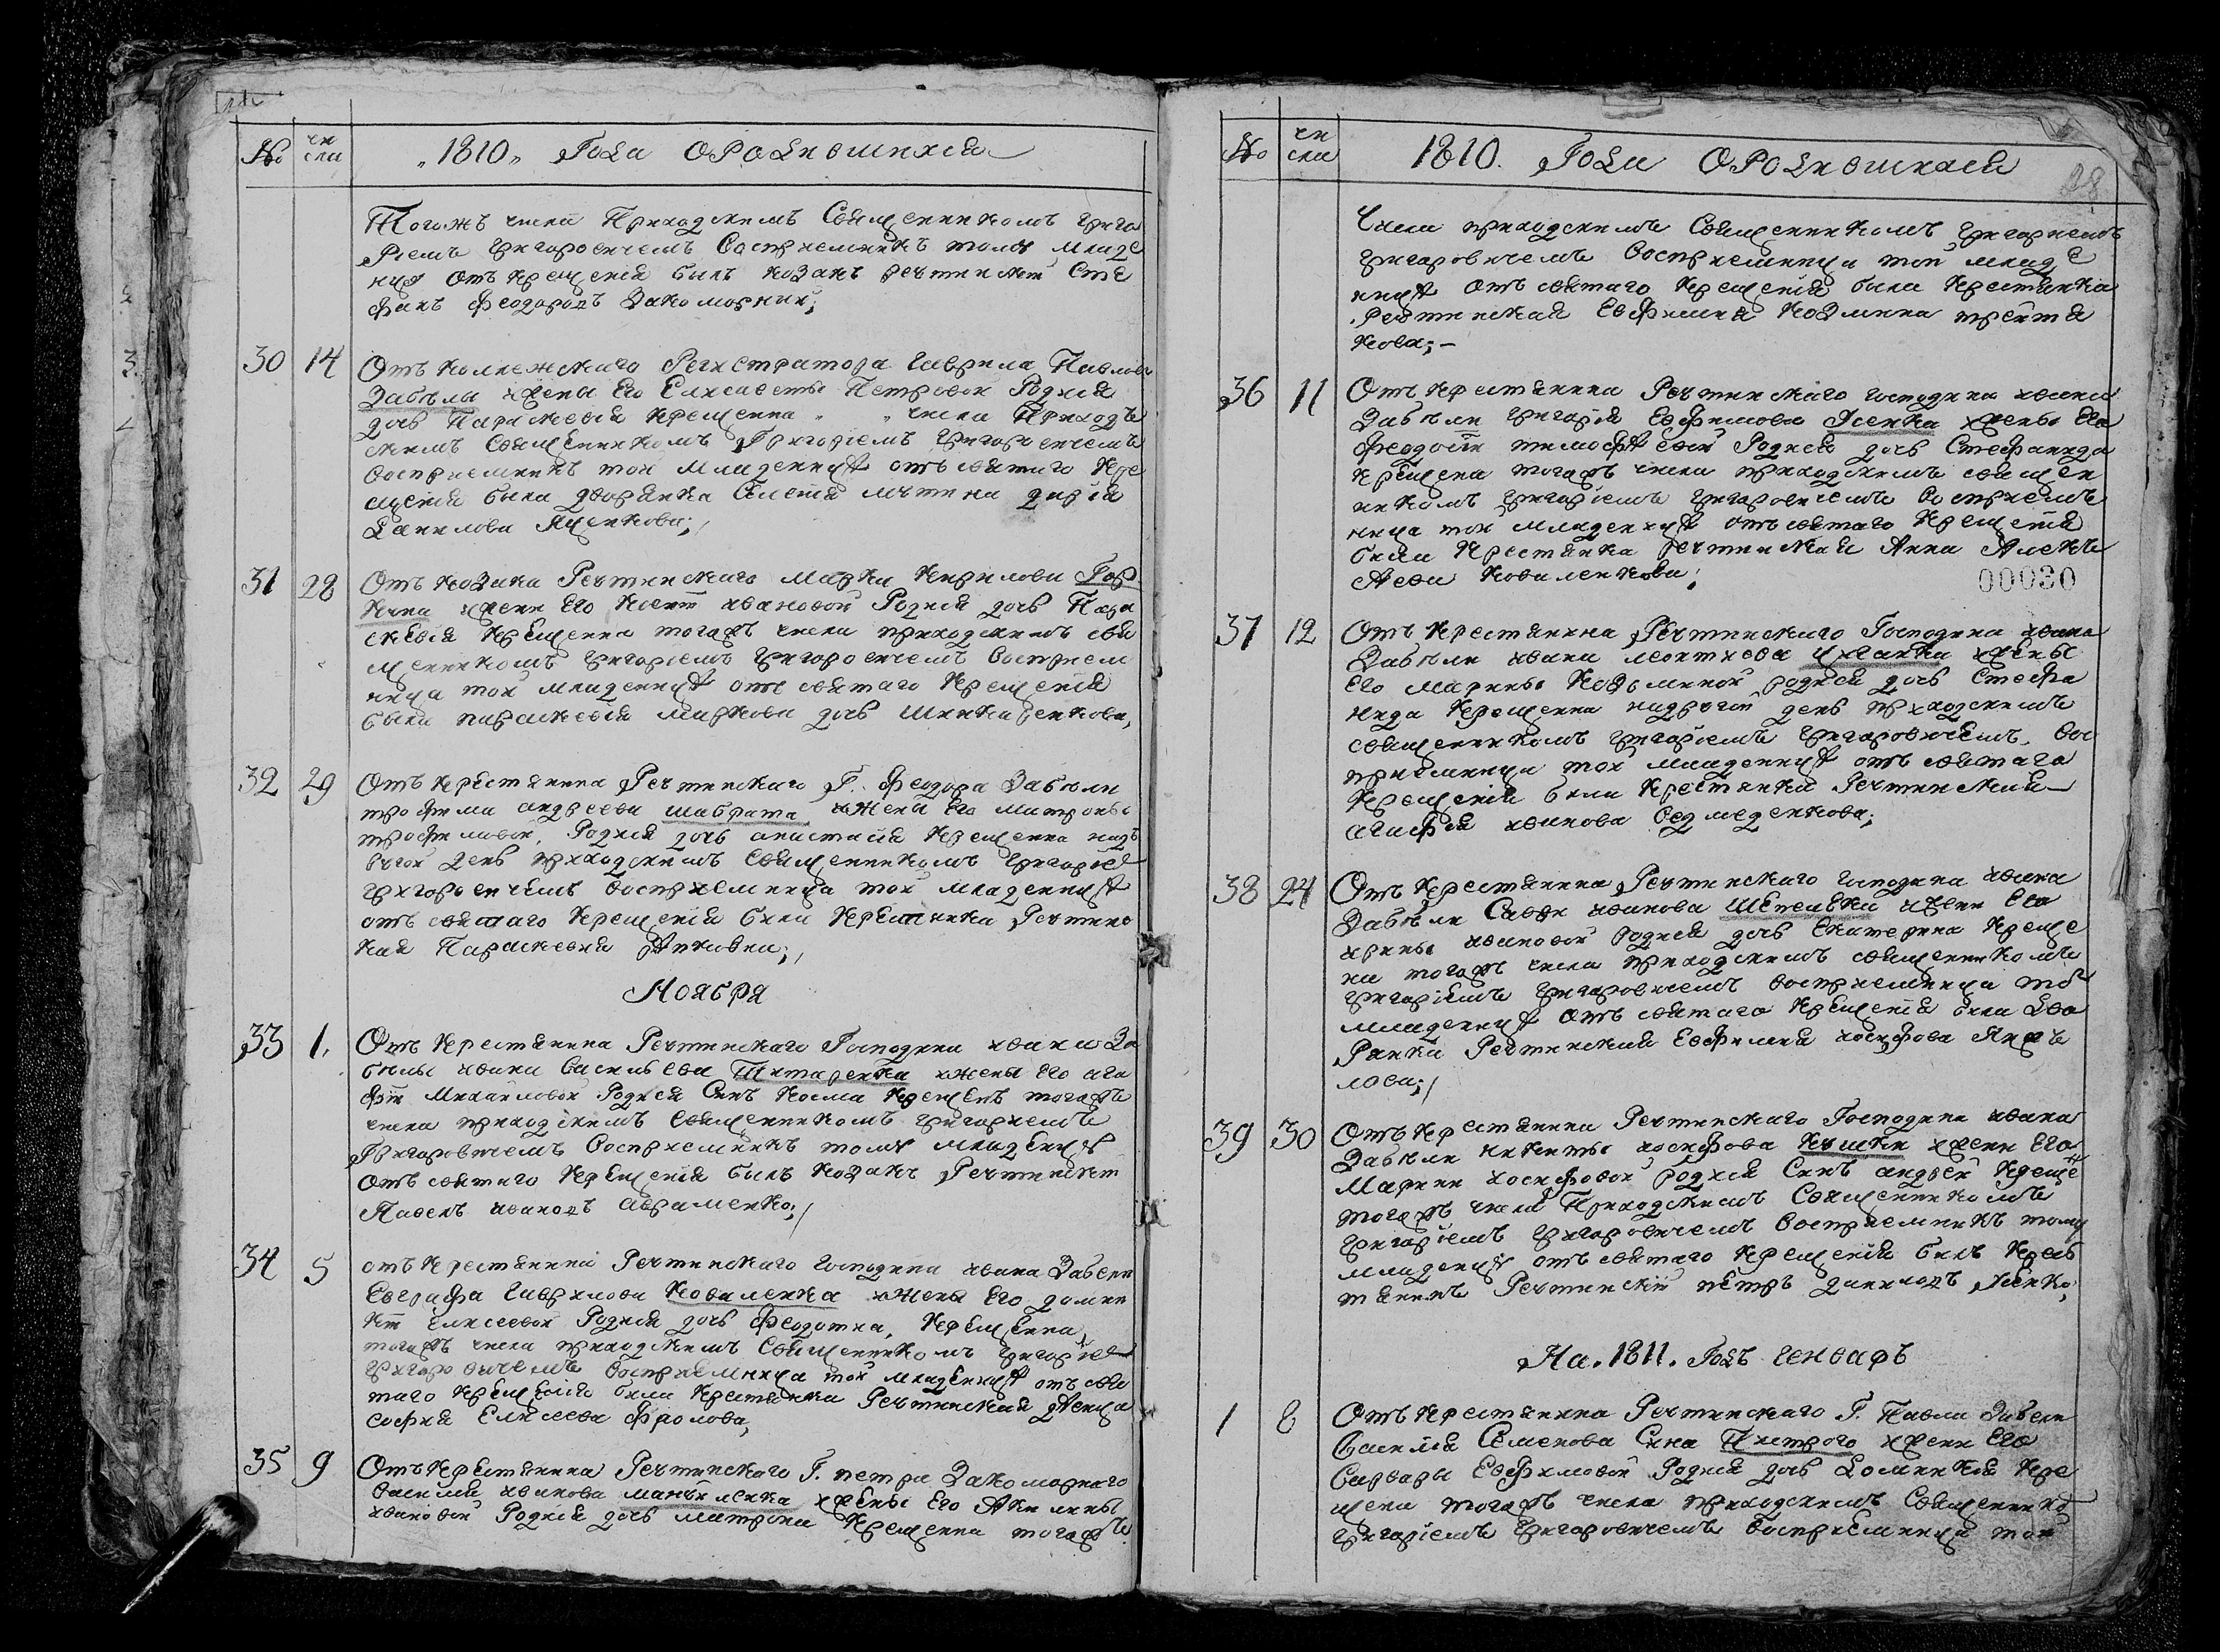 № чи
сла
„1810„ Года О Рождшихся
Тогожъ числа Приходскимъ Священникомъ Григо
риемъ Григоровичемъ Восприемникъ тому младе
нцу отъ крещенія былъ козакъ речтинскій Сте
фанъ Феодоровъ Закоморный;
30 14 Отъ Коллежскаго Регистратора Гаврила Павлова
Забѣлы жены Его Елисаветы Петровой Родися
дочь Параскевія Крещенна „ „ числа Приход
скимъ Священникомъ Григоріемъ Григоровичемъ
восприемникъ той младенцу отъ святаго Кре
щенія была дворянка дарія
Данилова Яценкова;
31 28 Отъ козака Речтинскаго Марка Кирилова Гор
кина жены Его Ивановой Родися дочь Пара
скевія Крещенна тогожъ числа приходскимъ свя
щенникомъ Григоріемъ Григоровичемъ восприем
ница той младенцу отъ святаго Крещенія
была параскевія маркова дочь Шинкаренкова,
32 29 Отъ крестянина Речтинскаго Г. Феодора Забѣлы
трофима андреева шабрата жены Его матроны
трофимовой, Родися дочь анастасія Крещенна надр
угой день приходскимъ священникомъ Григорие
Григоровичемъ восприемница той младенцу
отъ святаго Крещенія была Крестянка Речтинс
кая Параскевия
Ноября
33 1. Отъ Крестянина Речтинскаго Господина ивана За
бѣлы ивана васильева Титаренка жены Его ага
фіи Михайловой Родися Синъ Косма Крещенъ тогожъ
числа приходскимъ священникомъ Григориемъ
Григоровичемъ восприемникъ тому младенцу
отъ святаго Крещенія былъ козакъ Речтинскій
Павелъ ивановъ авраменко;
34 5 отъ Крестянина Речтинскаго господина ивана Забели
Евграфа Гаврилова Коваленка жены Его домни
кіи Елисеевой Родися дочь Феодотия, Крещенна,
тогожъ числа приходскимъ Священникомъ григорие
Григоровичемъ восприемница той младенцу отъ свя
таго Крещенія была крестянка Речтинская
софия Елисеева Фролова,
35 9 Отъ Крестянина Речтинскаго Г. петра Закоморнаго
василия иванова жены Его Акилины
ивановой Родися дочь матрона Крещенна тогожъ
№ чи
сла
1810. Года О Рождшихся
28
Числа приходскимъ Священникомъ Григориемъ
Григоровичемъ восприемница той младе
нцу отъ святаго крещенія была Крестянка
Речтинская Евфимия Козмина
кова;–
36 11 Отъ Крестянина Речтинскаго господина ивана
Забѣли Григорія Евфимова Усенка жены Его
Феодосіи тимофѣевой Родися дочь Стефанида
крещена тогожъ числа приходскимъ священ
никомъ Григоріемъ Григоровичемъ восприем
ница той младенцу отъ святаго Крещенія
была Крестянка Речтинская Анна Алекс
ѣева Коваленкова;
00030
37 12 Отъ Крестянина Речтинскаго Господина ивана
Забѣли ивана леонтиева Циганка жены
его Марины Козьминой родися дочь Стефа
нида Крещенна надругій день приходскимъ
священникомъ Григоріемъ Григоровичемъ. Вос
приемница той младенцу отъ святаго
Крещенія была Крестянка Речтинская
агафія иванова ведмеденкова;
38 24 Отъ Крестянина Речтинскаго господина ивана
Забѣли Саввы иванова Шепелека жены Его
ирины ивановой Родися дочь Екатерина Креще
на тогожъ числа приходскимъ священникомъ
Григоріемъ Григоровичемъ восприемница той
младенцу отъ святаго Крещенія была Дво
рянка Речтинская Евфимия иосифова
лова;
39 30 Отъ Крестянина Речтинскаго Господина ивана
Забѣли никиты иосифова Кушки жены Его
Марии иосифовой родися Синъ андрей Креще
тогожъ числа Приходскимъ Священникомъ
Григоріемъ Григоровичемъ восприемникъ тому
младенцу отъ святаго Крещенія былъ Крес
тянинъ Речтинскій петръ даниловъ Усенко;
На. 1811. Годъ генваръ
1 8 Отъ Крестянина Речтинскаго Г. Павла Забели
Василія Семенова Сина Пистрого жены Его
варвары Евфимовой Родися дочь Домникія Кре
щена тогожъ числа приходскимъ Священнико
Григоріемъ Григоровичемъ восприемница той